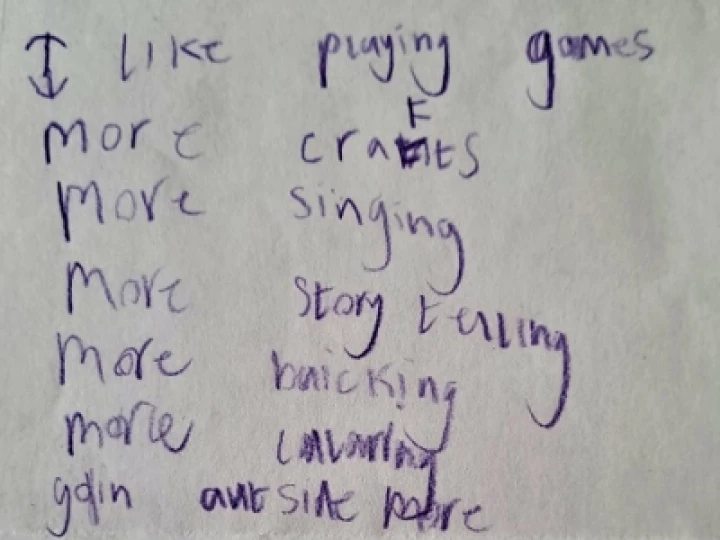 I like playing games
more crafts
more singing
more story telling
more baicking
more
goin autside more